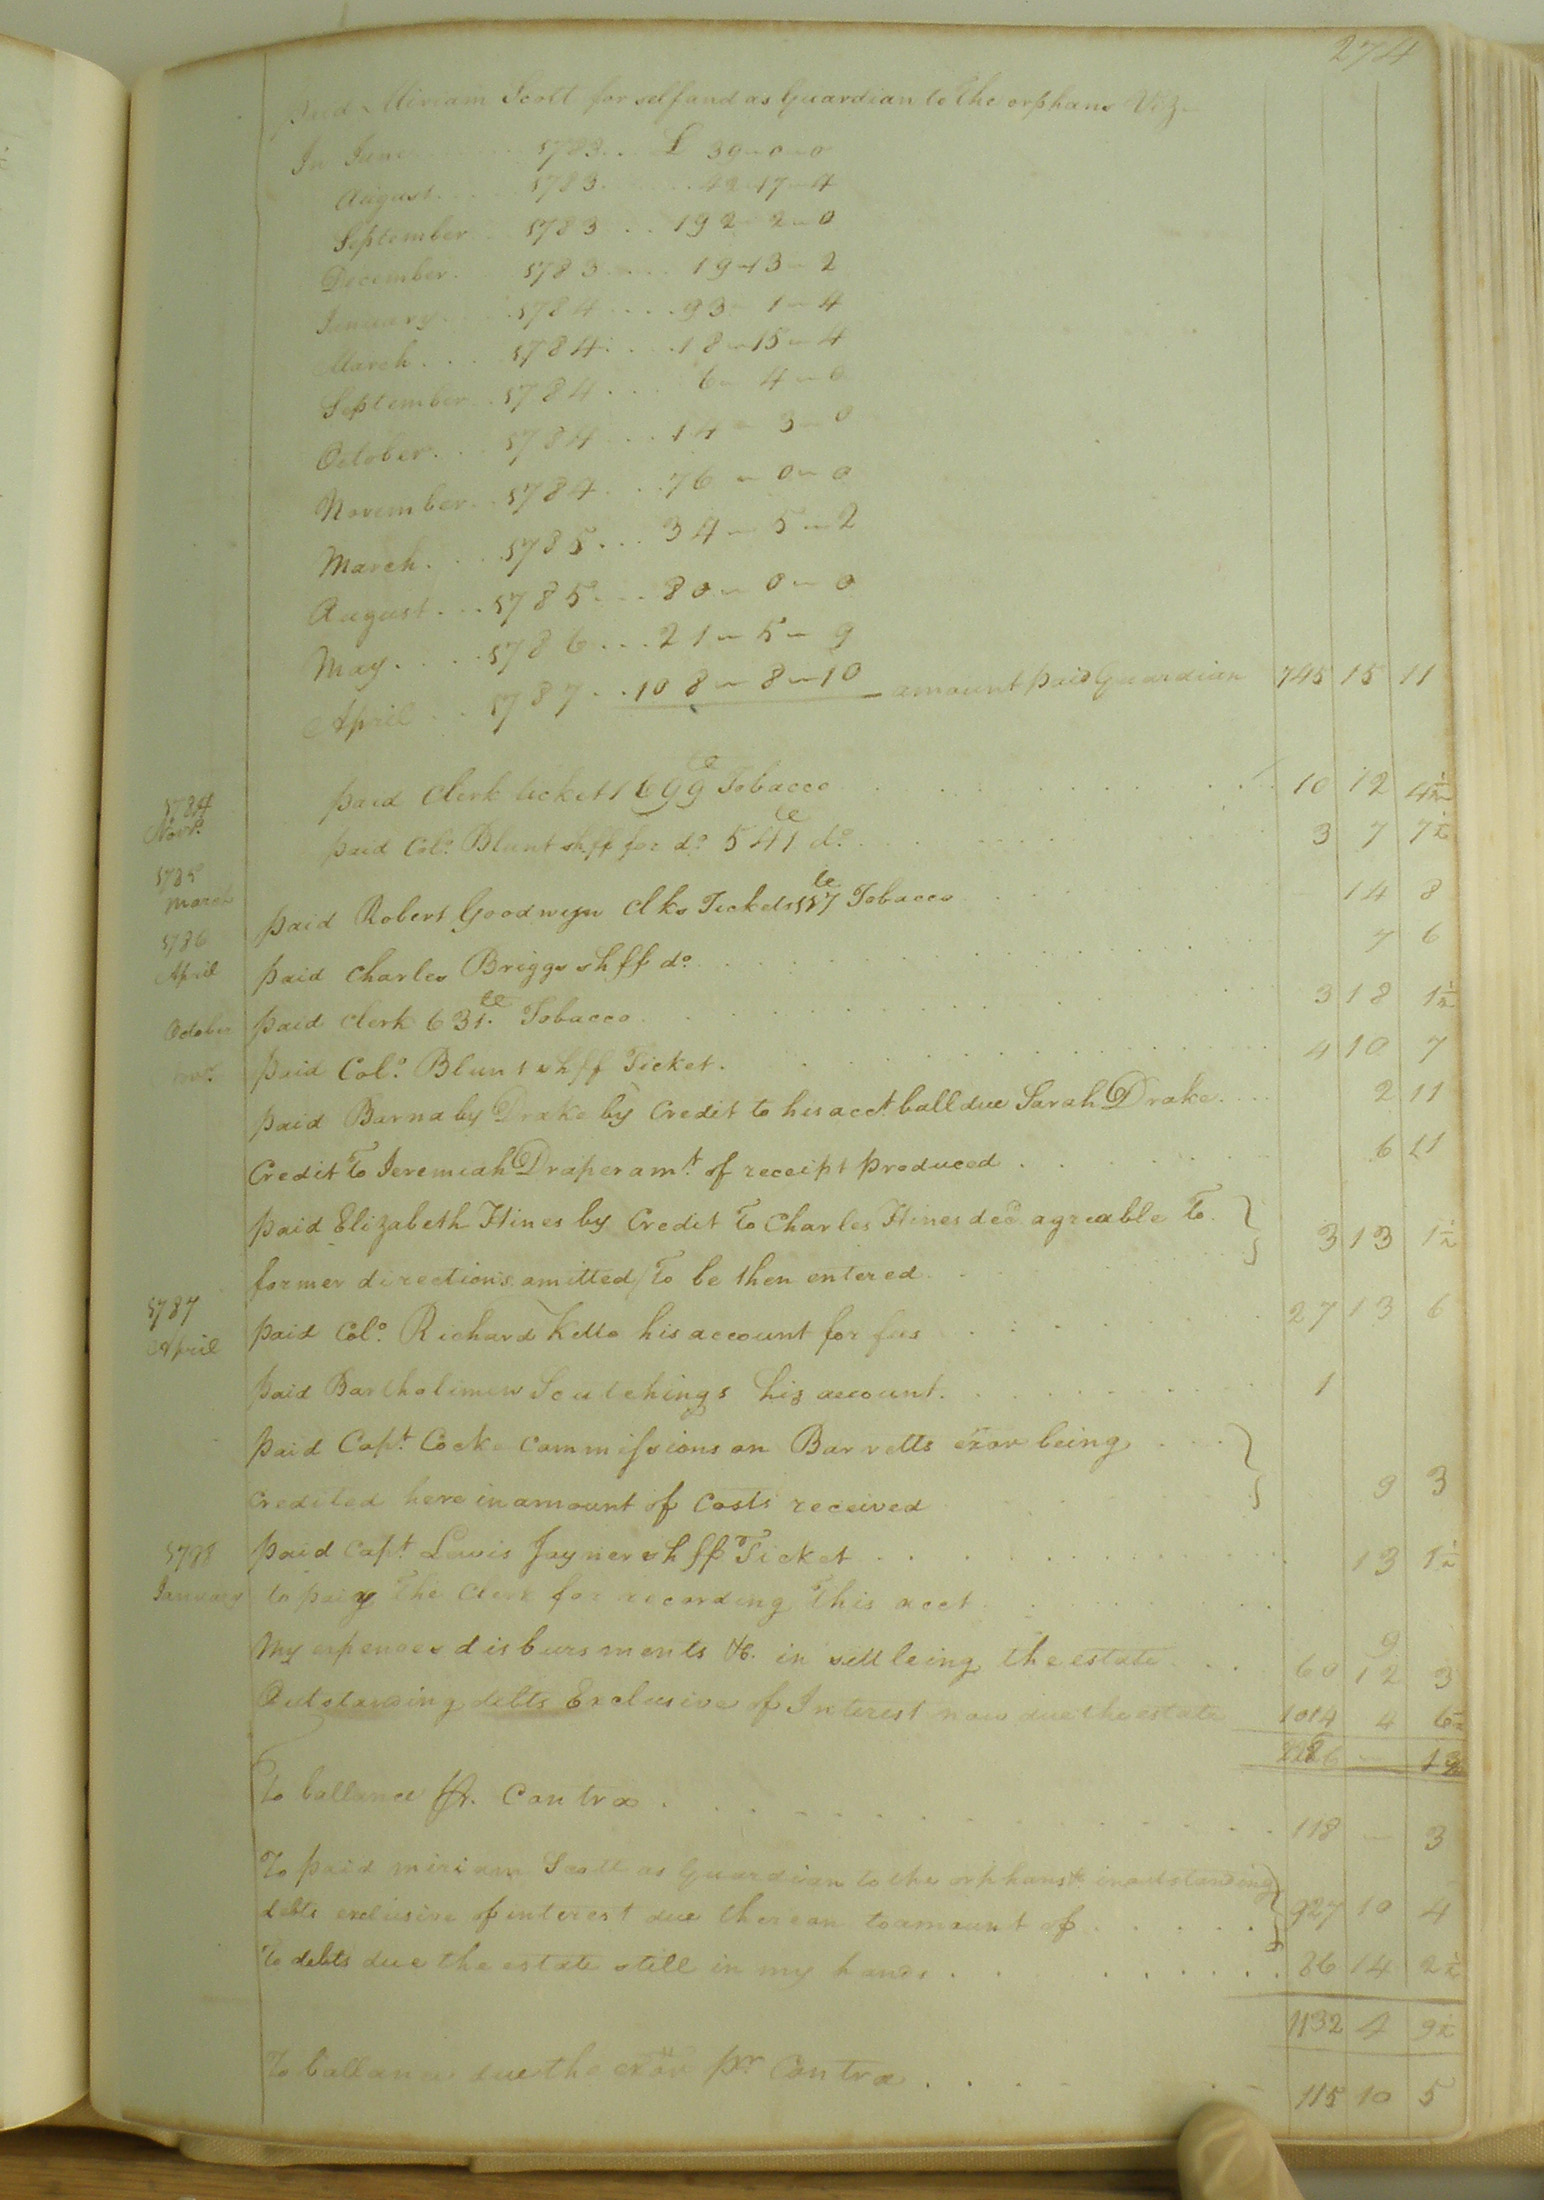 274
paid Miriam Scott for self and as Guardian to the orphans Viz
In June 1783 .. £ 39-0-0
August .. 1783 .. 42-17-4
September 1783 .. 192-2-0
December 1783 .. 19-13-2
January 1784 .. 93-1-4
March ... 1784 .. 18-15-4
September 1784 .. 6-4-0
October .. 1784 .. 14-3-0
November .. 1784 .. 76-0-0
March ... 1785 ... 34-5-2
August ... 1785 ... 80-0-0
May .... 1786 ... 21-5-9
April .. 1787 .. 108-8-10 amount paid Guardian 745 15 11
1784 Novr. paid Clerk ticket 1699 lb Tobacco 10 12 4½
paid Colo. Blunt shff for do. 541 lb do. 3 7 7½
1785 March paid Robert Goodwyn Clks Tickets 117 lb Tobacco 14 8
1786 April paid Charles Briggs shff do. 7 6
October paid Clerk 631 lb Tobacco 3 18 1½
novr. paid Colo. Blunt shff Ticket. 4 10 7
paid Barnaby Drake by Credit to his acct ball due Sarah Drake 2 11
Credit To Jeremiah Draper amt. of receipt produced 6 11
paid Elizabeth Hines by Credit To Charles Hines decd. agreable To
former directions omitted To be then entered 3 13 1½
1787 April paid Colo. Richard Kello his account for fees 27 13 6
paid Bartholimew Scutchings his account. 1
paid Capt. Cocke commissions on Barretts exor being
credited here in amount of Costs received 9 3
1788 January paid Capt. Lewis Joyner shff Ticket 13 1½
to paiy The Clerk for recording This acct
9
My expences disbursments &c. in settleing the estate 60 12 3
Outstanding debts Exclusive of Interest now due the estate 1014 4 6½
— 1¾
To ballance pr. Contra 118 — 3
To paid miriam Scott as Guardian to the orphans in outstanding
debts exclusive of interest due thereon to amount of 927 10 4
To debts due the estate still in my hands 86 14 2½
1132 4 9½
To ballance due the exor pr Contra 115 10 5